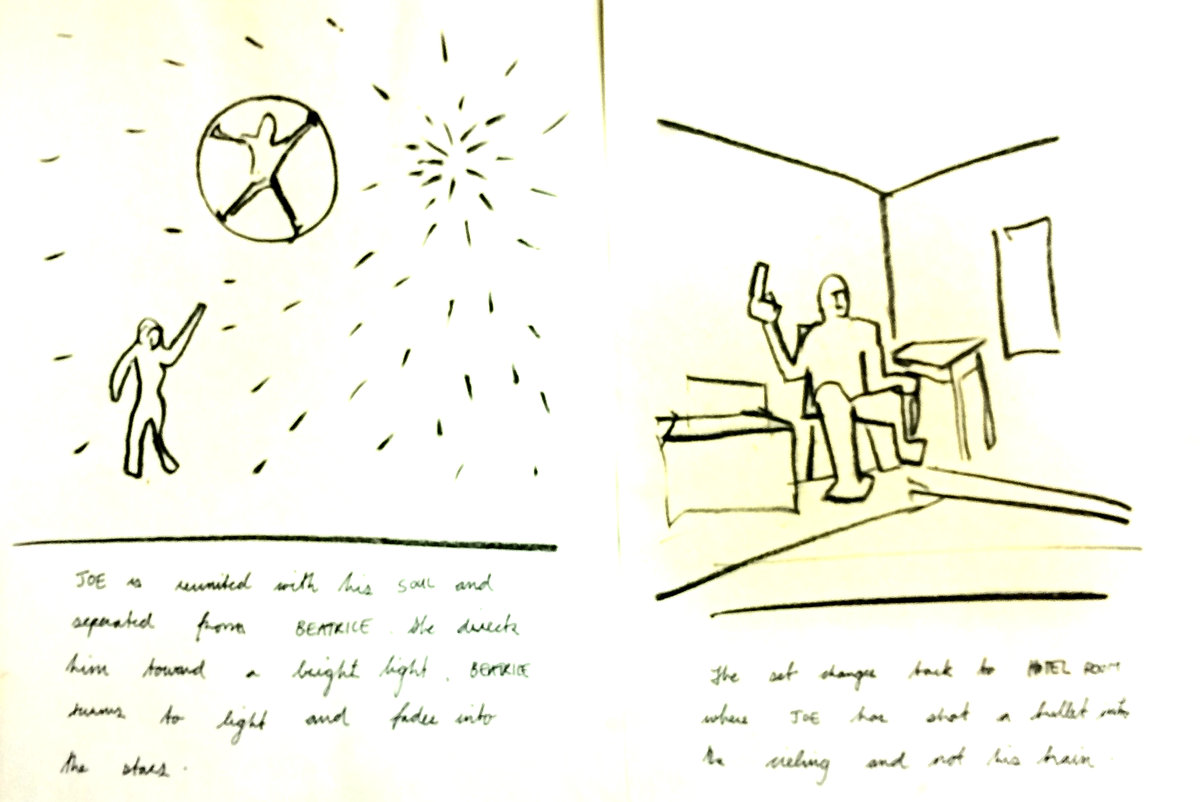 JOE is reunited with his SOUL and
seperated from BEATRICE. She directs
him toward a bright light. BEATRICE
turns to light and fades into
the stars.
The set changes back to HOTEL ROOM
where JOE has shot a bullet into
the cieling and not his brain.